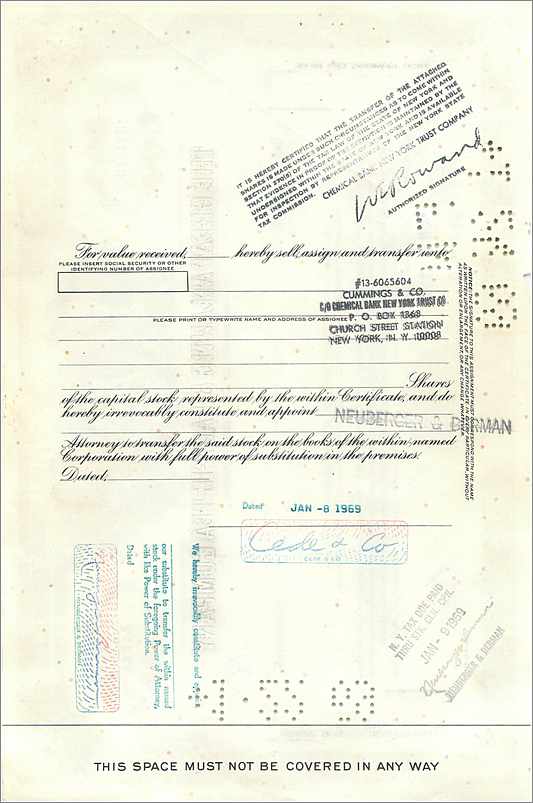 IT IS HEREBY CERTIFIED THAT THE TRANSFER OF THE ATTACHED
SHARES IS MADE UNDER SUCH CIRCUMSTANCES AS TO COME WITHIN
SECTION 270(5) OF THE TAX LAW OF THE STATE OF NEW YORK AND
THAT EVIDENCE IN PROOF OF THE EXEMPTION IS MAINTAINED BY THE
UNDERSIGNED WITHIN THE STATE OF NEW YORK AND IS AVAILABLE
FOR INSPECTION BY REPRESENTATIVES OF THE NEW YORK STATE
TAX COMMISSION.
CHEMICAL BANK NEW YORK TRUST COMPANY
AUTHORIZED SIGNATURE
For value received, hereby sell, assign and transfer unto
PLEASE INSERT SOCIAL SECURITY OR OTHER
IDENTIFYING NUMBER OF ASSIGNEE
#13-6065604
CUMMINGS & CO.
C/O CHEMICAL BANK NEW YORK TRUST CO
P. O. BOX 1368
CHURCH STREET STATION
NEW YORK, N. Y. 10008
PLEASE PRINT OR TYPEWRITE NAME AND ADDRESS OF ASSIGNEE
Shares
of the capital stock represented by the within Certificate, and do
hereby irrevocably constitute and appoint
NEUBERGER & BERMAN
Attorney to transfer the said stock on the books of the within named
Corporation with full power of substitution in the premises.
Dated,
NOTICE: THE SIGNATURE TO THIS ASSIGNMENT MUST CORRESPOND WITH THE NAME
AS WRITTEN UPON THE FACE OF THE CERTIFICATE IN EVERY PARTICULAR, WITHOUT
ALTERATION OR ENLARGEMENT, OR ANY CHANGE WHATEVER.
Dated JAN -8 1969
Cede & Co
We hereby irrevocably constitute and appoint
our substitute to transfer the within named
stock under the foregoing Power of Attorney,
with like Power of Substitution.
Dated
NEUBERGER & BERMAN
N. Y. TAX ONE PAID
THRU STK. CLR. CPR.
JAN -9 1969
NEUBERGER & BERMAN
THIS SPACE MUST NOT BE COVERED IN ANY WAY